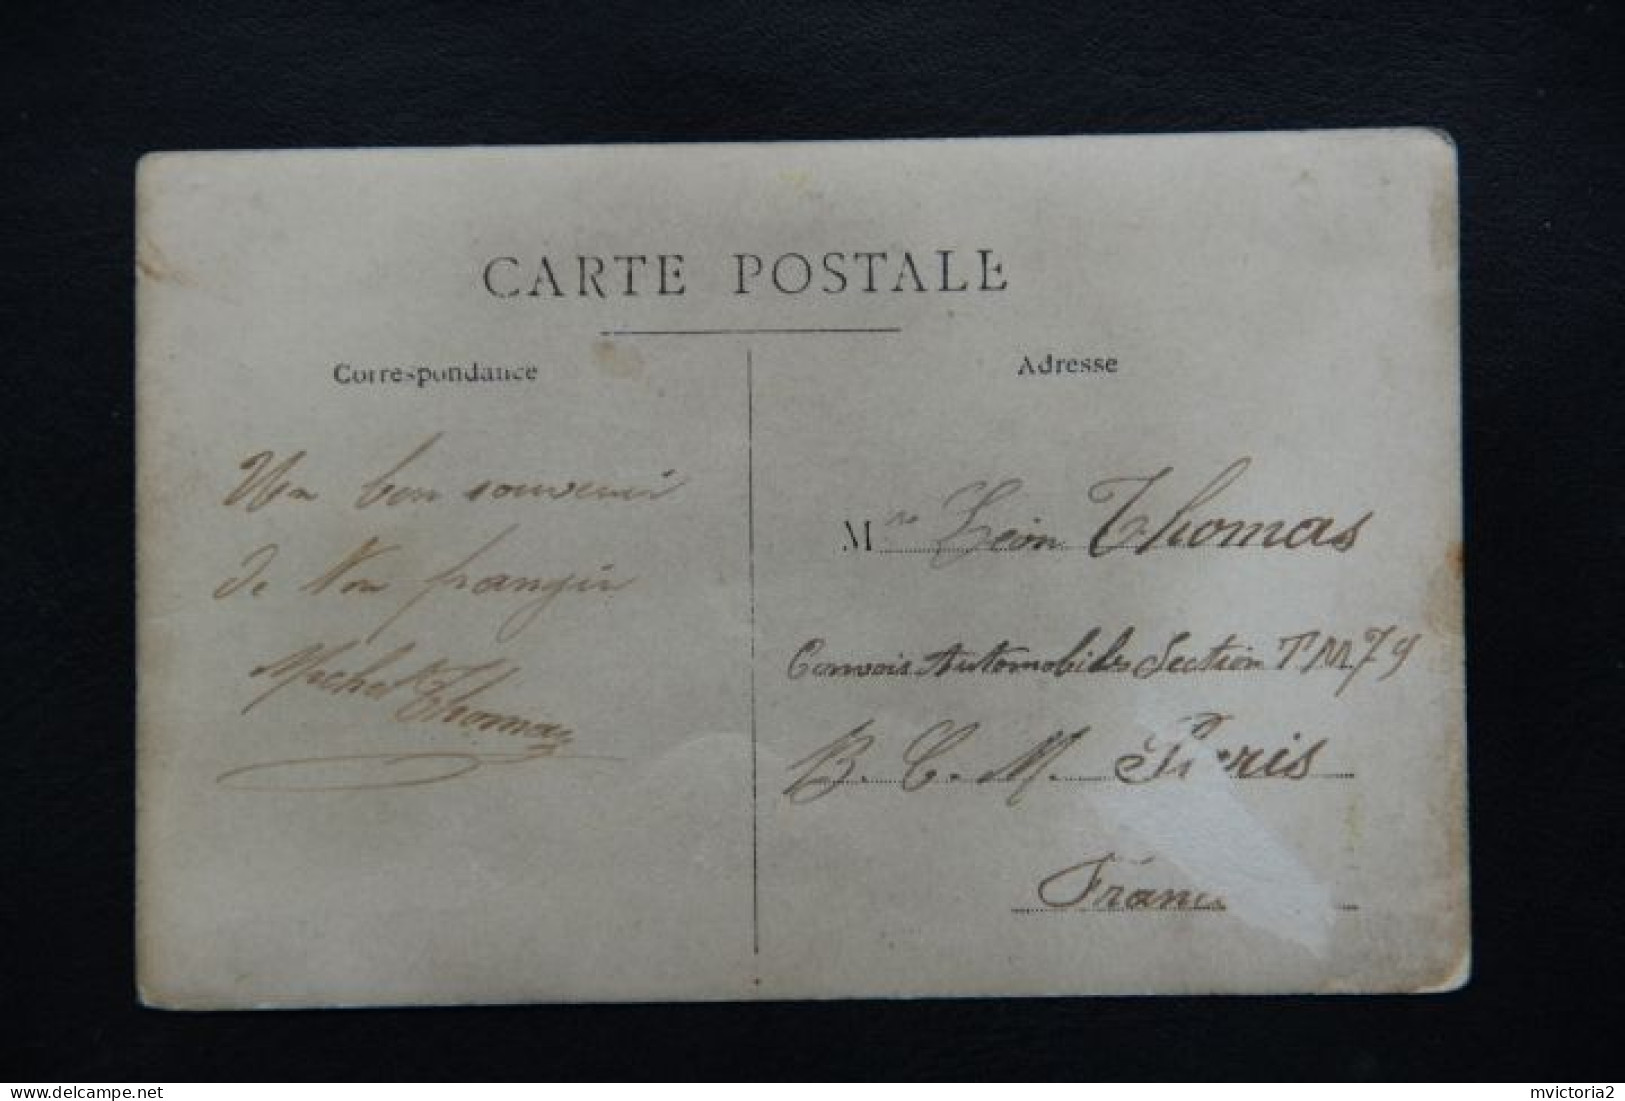 CARTE POSTALE
Correspondance
Adresse
Un bon souvenir
de Ton frangin
Michel Thomas
M Léon Thomas
Convois Automobiles Section TM 79
B. C. M. Paris
France
mvictoria2